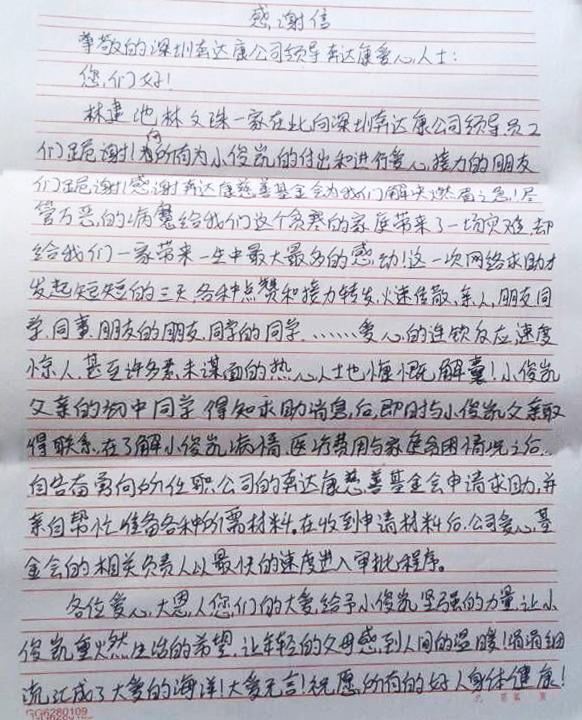 感谢信
尊敬的深圳奔达康公司领导奔达康爱心人士:
您们好!
林建池,林文珠一家在此向深圳奔达康公司领导员工
们致谢!向所有为小俊凯的付出和进行爱心接力的朋友
们致谢!感谢奔达康慈善基金会为我们解决燃眉之急!尽
管万恶的病魔给我们这个贫寒的家庭带来了一场灾难,却
给我们一家带来一生中最大最多的感动!这一次网络求助才
发起短短的三天,各种点赞和接力转发,火速传散,亲人,朋友,同
学,同事,朋友的朋友,同学的同学,……爱心的连锁反应,速度
惊人,甚至许多素未谋面的热心人士也慷慨解囊!小俊凯
父亲的初中同学得知求助消息后,即时与小俊凯父亲取
得联系,在了解小俊凯病情,医治费用与家庭贫困情况之后,
自告奋勇向所任职公司的奔达康慈善基金会申请求助,并
亲自帮忙准备各种所需材料。在收到申请材料后,公司爱心基
金会的相关负责人以最快的速度进入审批程序。
各位爱心大恩人您们的大爱给予小俊凯坚强的力量,让小
俊凯重燃生活的希望,让年轻的父母感到人间的温暖!涓涓细
流汇成了大爱的海洋!大爱无言!祝愿所有的好人身体健康!
GG6280109